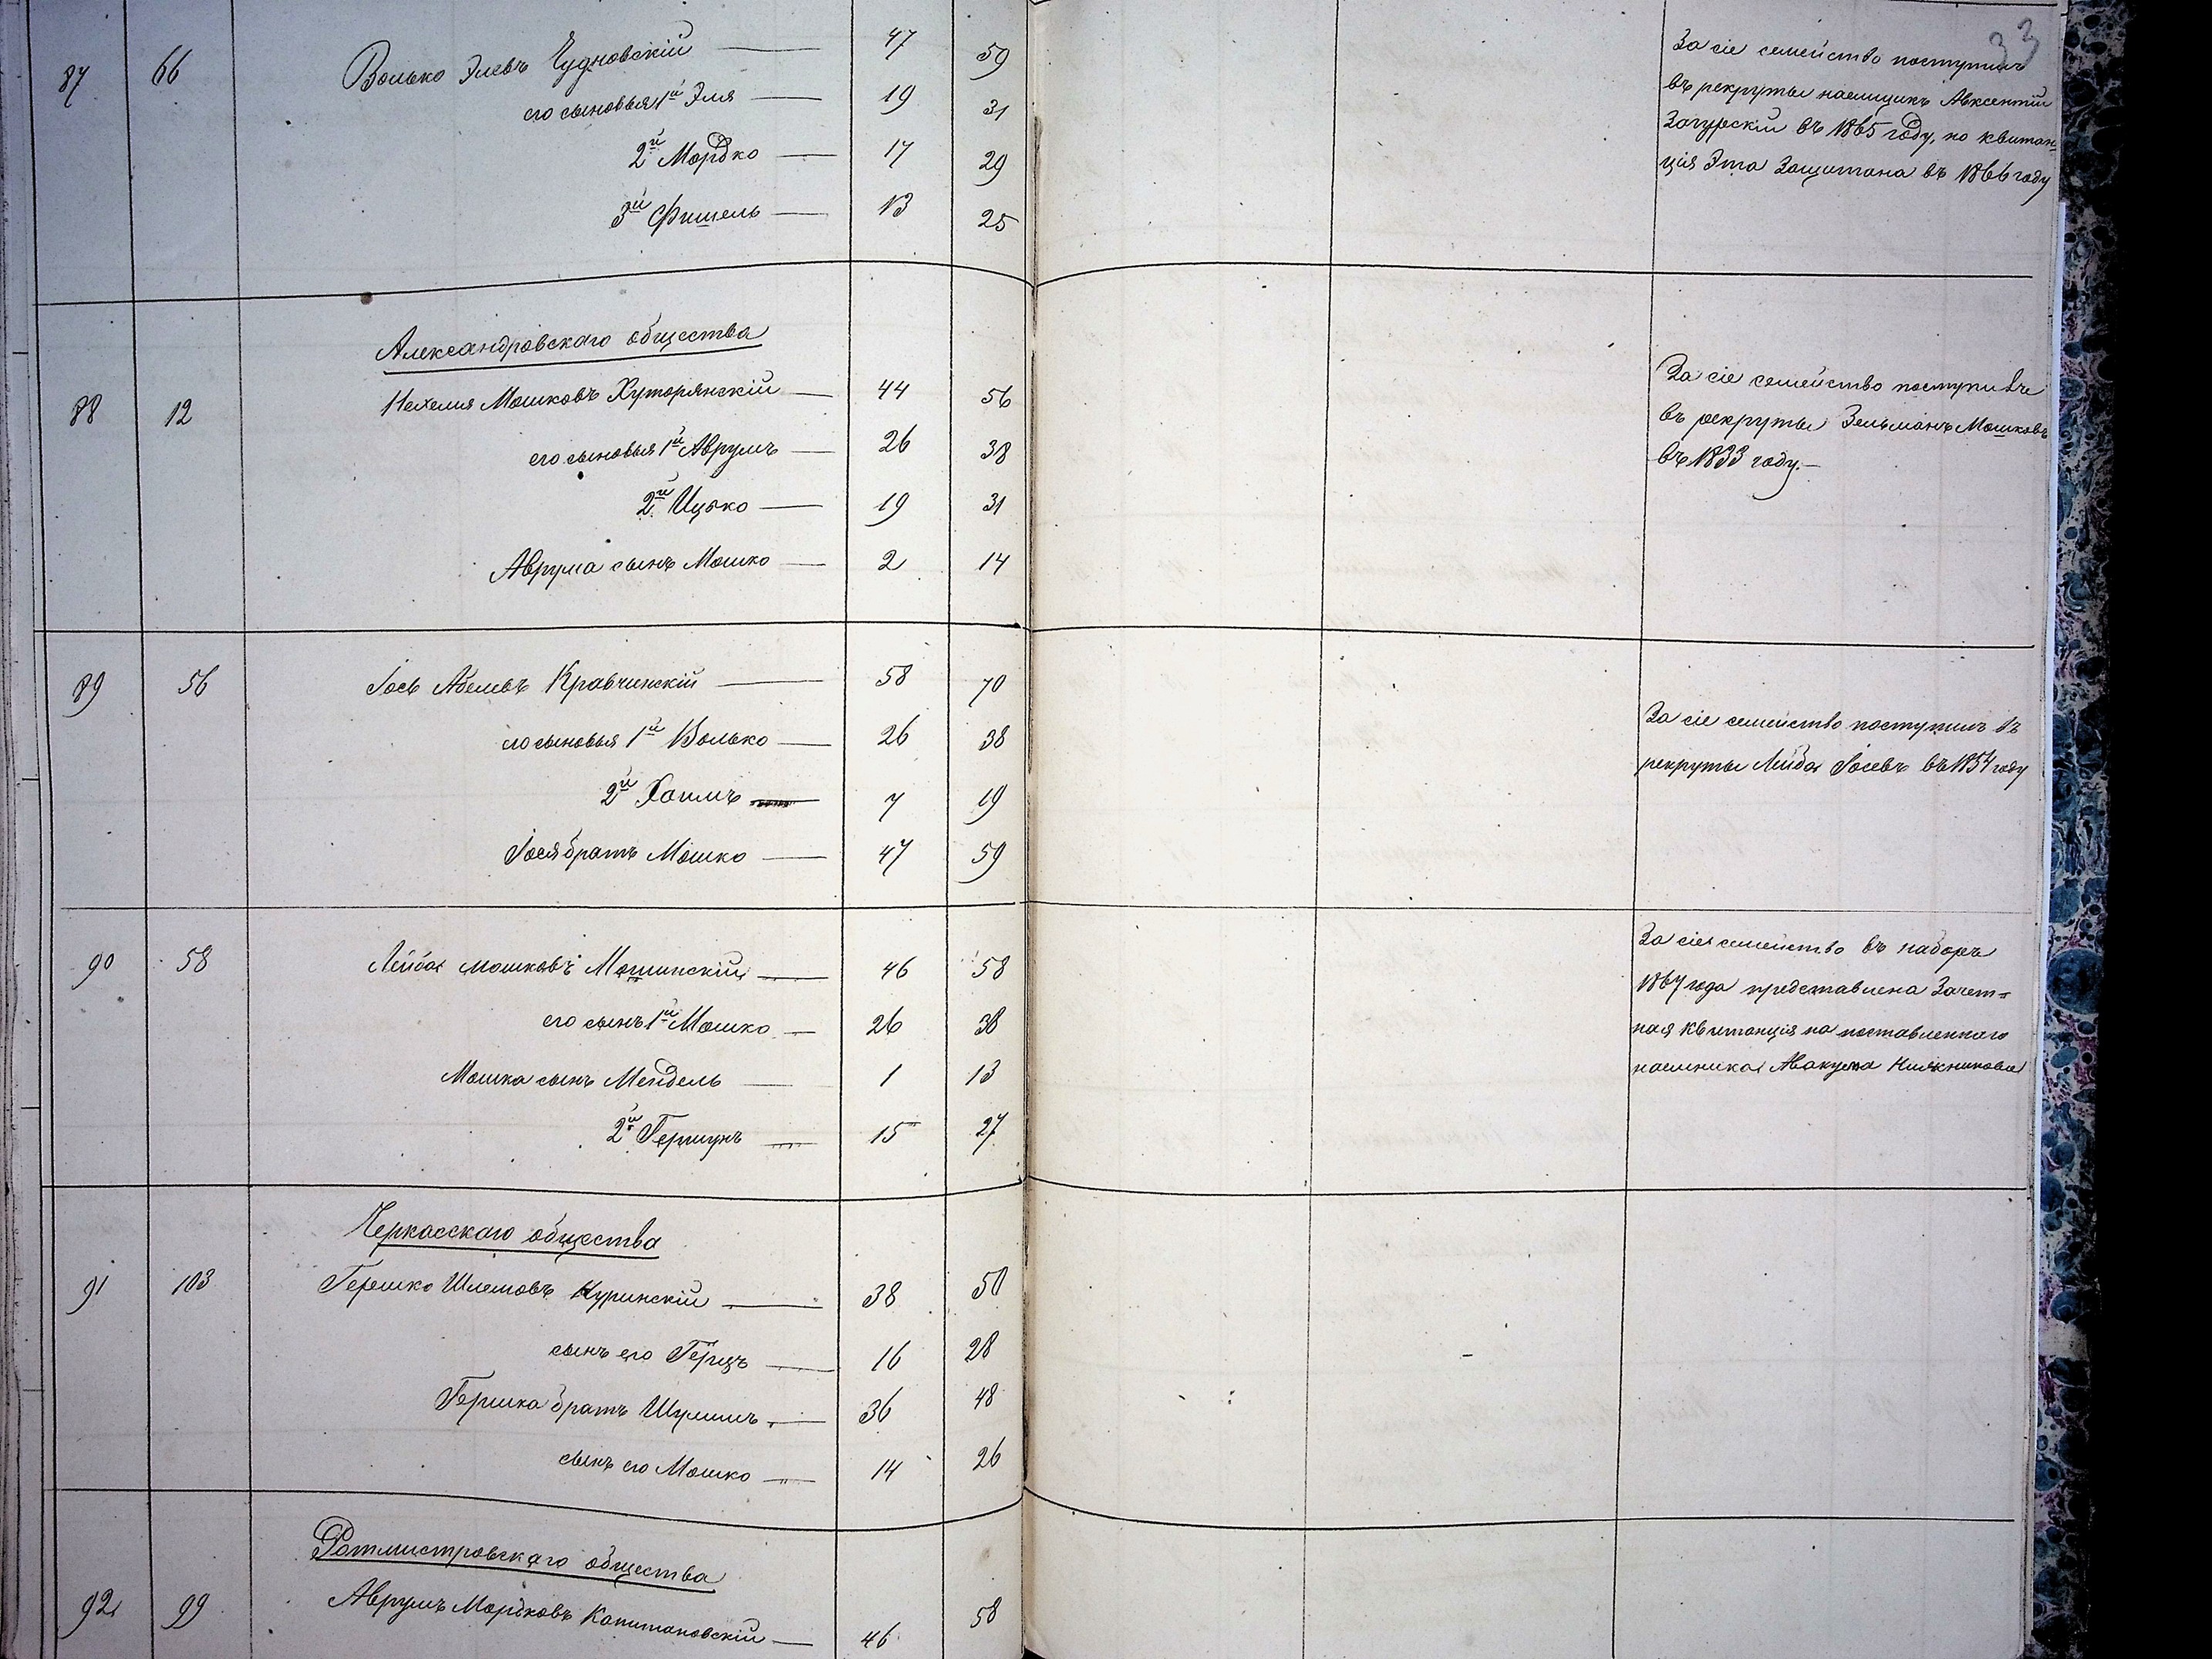 33
87 66 Волько Элевъ Чудновскій — 47 59
его сыновья 1й Эля — 19 31
2й Мордко — 17 29
3й Фишель — 13 25
За сіе семейство поступилъ
въ рекруты наемщикъ Авксентій
Загурскій въ 1865 году, но квитан-
ція Эта Защитана въ 1866 году
Александровскаго общества
88 12 Нехемия Мошковъ Хуторянскій — 44 56
его сыновья 1й Аврумъ — 26 38
2й Ицько — 19 31
Аврума сынъ Мошко — 2 14
За сіе семейство поступилъ
въ рекруты Зельманъ Мошковъ
въ 1833 году. —
89 56 Іось Абелевъ Кравчинскій — 58 70
его сыновья 1й Волько — 26 38
2й Хаимъ — 7 19
Іося братъ Мошко — 47 59
За сіе семейство поступилъ въ
рекруты Лейба Іосевъ въ 1854 году
90 58 Лейба Мошковъ Мошинскій — 46 58
его сынъ 1й Мошко — 26 38
Мошка сынъ Мендель — 1 13
2й Гершунъ — 15 27
За сіе семейство въ наборъ
1867 года представлена Зачет=
ная квитанція на поставленнаго
наемника Авакума
Черкасскаго общества
91 103 Гершко Шлемовъ Куринскій — 38 50
сынъ его Герцъ — 16 28
Гершка братъ Шулимъ — 36 48
сынъ его Мошко — 14 26
Ротмистровскаго общества
92 99 Аврумъ Мордковъ Капитановскій — 46 58